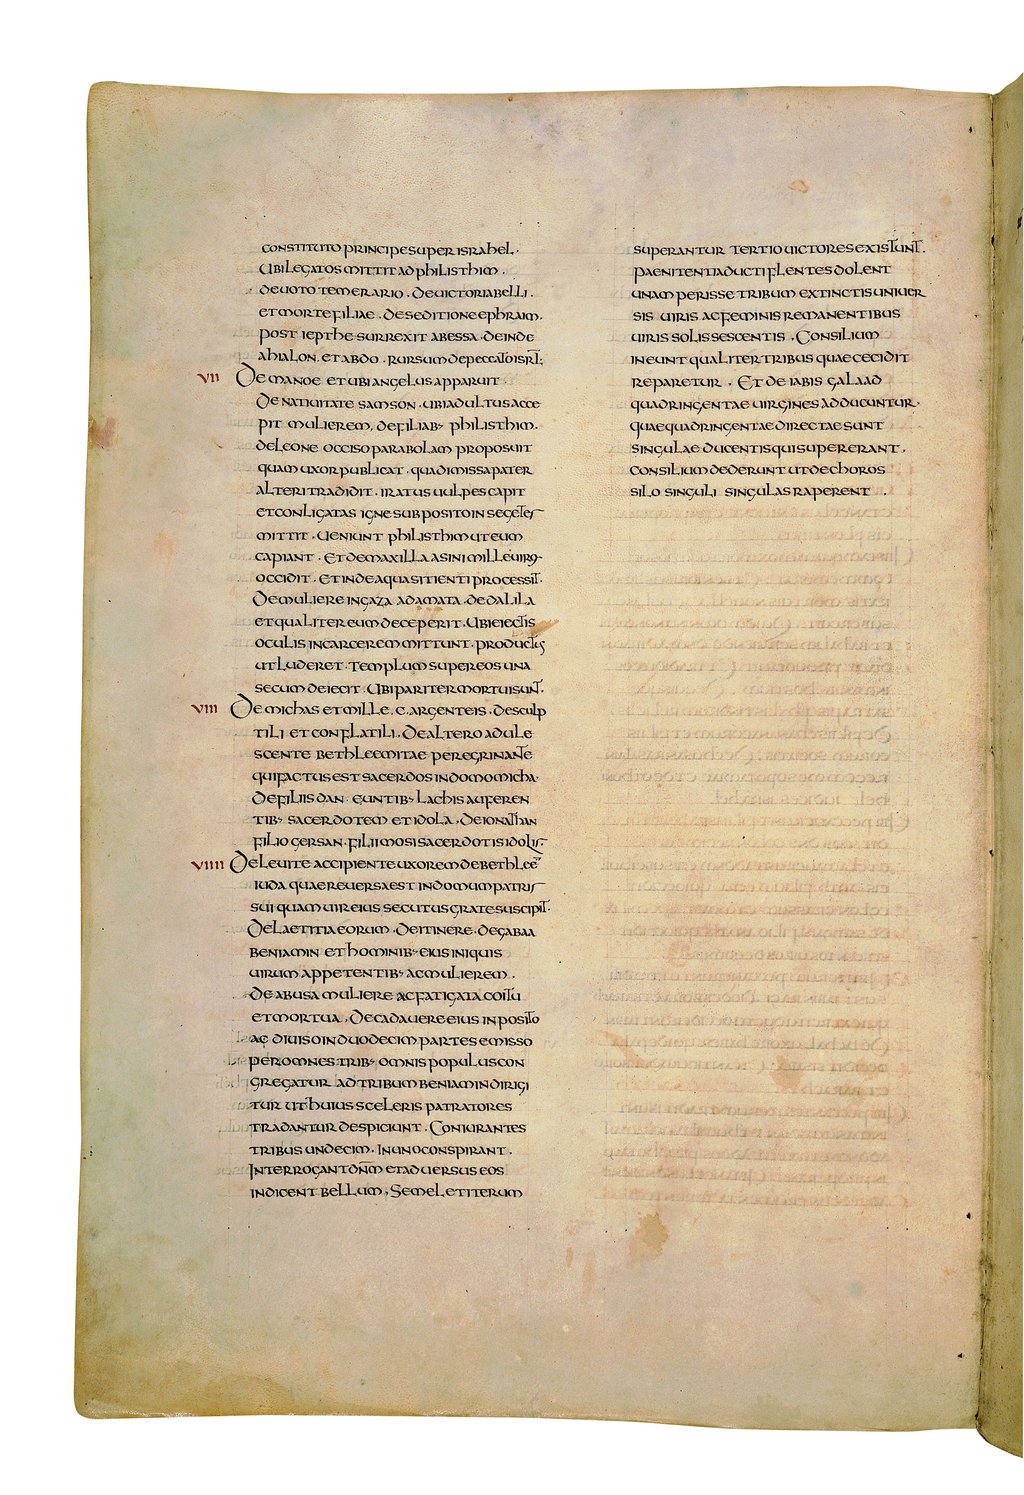 constituto principe super israhel·
Ubi legatos mittit ad philisthim·
De uoto temerario· De uictoria belli·
et morte filiae· De seditione ephraim·
post iepthe surrexit abessa· deinde
ahialon· et abdo· rursum de peccato isrl·
VII De manoe et ubi angelus apparuit·
De natiuitate samson· ubi adultus acce
pit mulierem, de filiab; philisthim·
de leone occiso parabolam proposuit
quam uxor publicat· quadimissa pater
alteri tradidit· iratus uulpes capit
et conligatas igne subposito in segetes
mittit· Ueniunt philisthim ut eum
capiant· Et de maxilla asini mille uiros
occidit· et inde aqua sitienti processit·
De muliere in gaza adamata· de dalila
et qualiter eum deceperit· Ubi eiectis
oculis in carcerem mittunt· productus
ut luderet· templum super eos una
secum deiecit· Ubi pariter mortui sunt·
VIII De michas et mille· c· argenteis· de sculp
tili et conflatili· De altero adule
scente bethleemitae peregrinante
qui factus est sacerdos in domo micha·
De filiis dan· euntib; lachis auferen
tib; sacerdotem et idola· de ionathan
filio gersan· filii mosi sacerdotis idolis·
VIIII De leuite accipiente uxorem de bethleē
iuda quae reuersa est in domum patris
sui quam uir eius secutus grate suscipit·
De laetitia eorum· de itinere· de gabaa
beniamin et hominib; eius iniquis
uirum appetentib; ac mulierem·
De abusa muliere ac fatigata coitu
et mortua· De cadauere eius inposito
ac diuiso in duodecim partes emisso
per omnes trib; omnis populus con
gregatur ad tribum beniamin dirigi
tur ut huius sceleris patratores
tradantur despiciunt· Coniurantes
tribus undecim· in uno conspirant·
Interrogant dnm̄ et aduersus eos
indicent bellum, Semel et iterum
superantur tertio uictores existunt·
paenitentia ducti flentes dolent
unam perisse tribum extinctis uniuer
sis uiris ac feminis remanentibus
uiris solis sescentis· Consilium
ineunt qualiter tribus quae cecidit
reparetur· Et de iabis galaad
quadringentae uirgines adducuntur·
quae quadringentae directae sunt
singulae ducentis qui supererant·
consilium dederunt ut de choros
silo singuli singulas raperent·